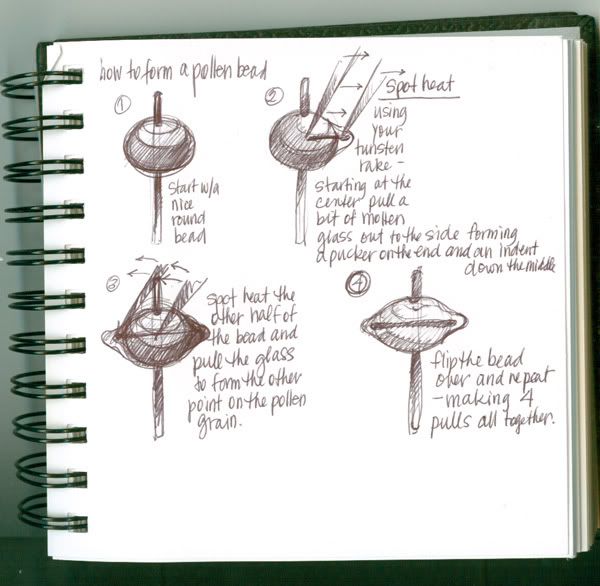 how to form a pollen bead
①
start w/a
nice
round
bead
②
Spot heat
using
your
tunsten
rake -
starting at the
center pull a
bit of molten
glass out to the side forming
a pucker on the end and an indent
down the middle
③
spot heat the
other half of
the bead and
pull the glass
to form the other
point on the pollen
grain.
④
flip the bead
over and repeat
- making 4
pulls all together.